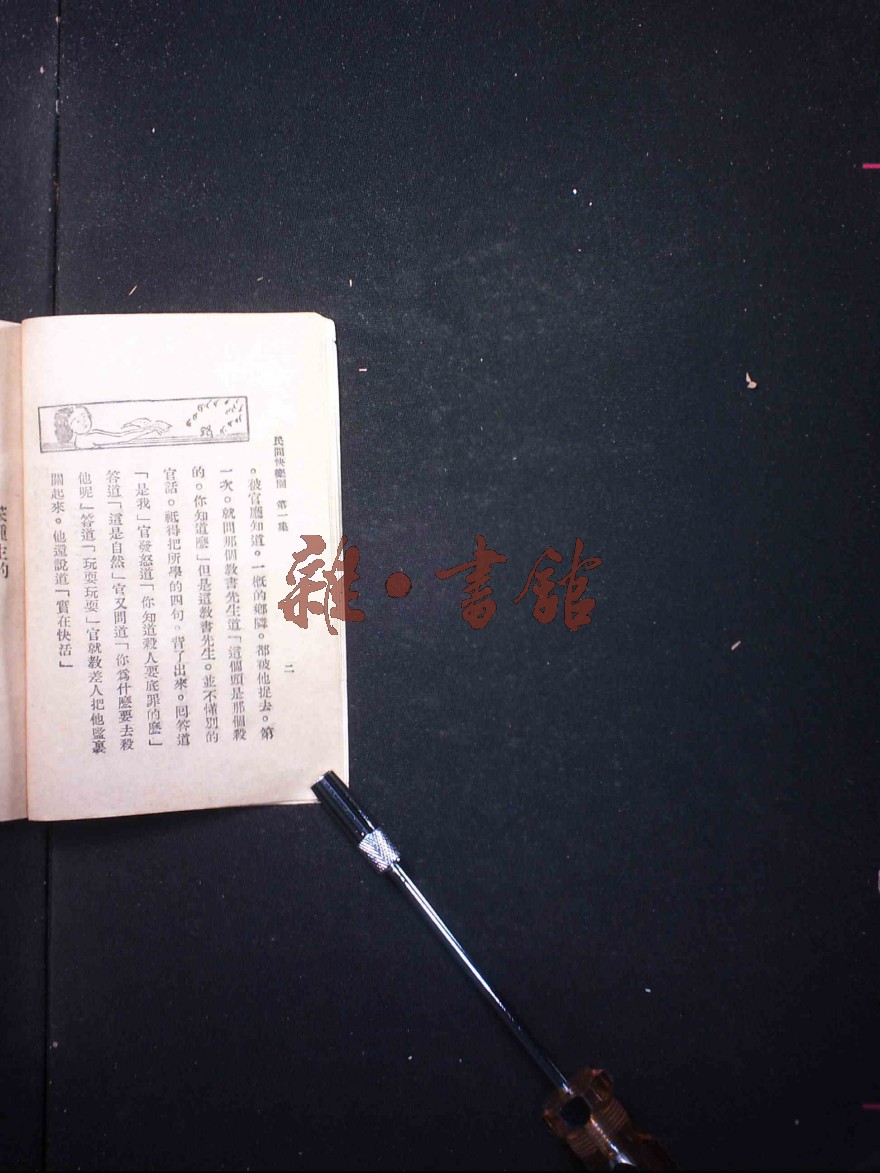 民間快樂園 第一集
二
。被官廳知道。一概的鄉隣。都被他捉去。第
一次。就問那個教書先生道「這個頭是那個殺
的。你知道麼」但是這教書先生。並不懂別的
官話。祇得把所學的四句。背了出來。囘答道
「是我」官發怒道「你知道殺人要底罪的麼」
答道「這是自然」官又問道「你爲什麼要去殺
他呢」答道「玩耍玩耍」官就教差人把他監裏
關起來。他還說道「實在快活」
雜·書館